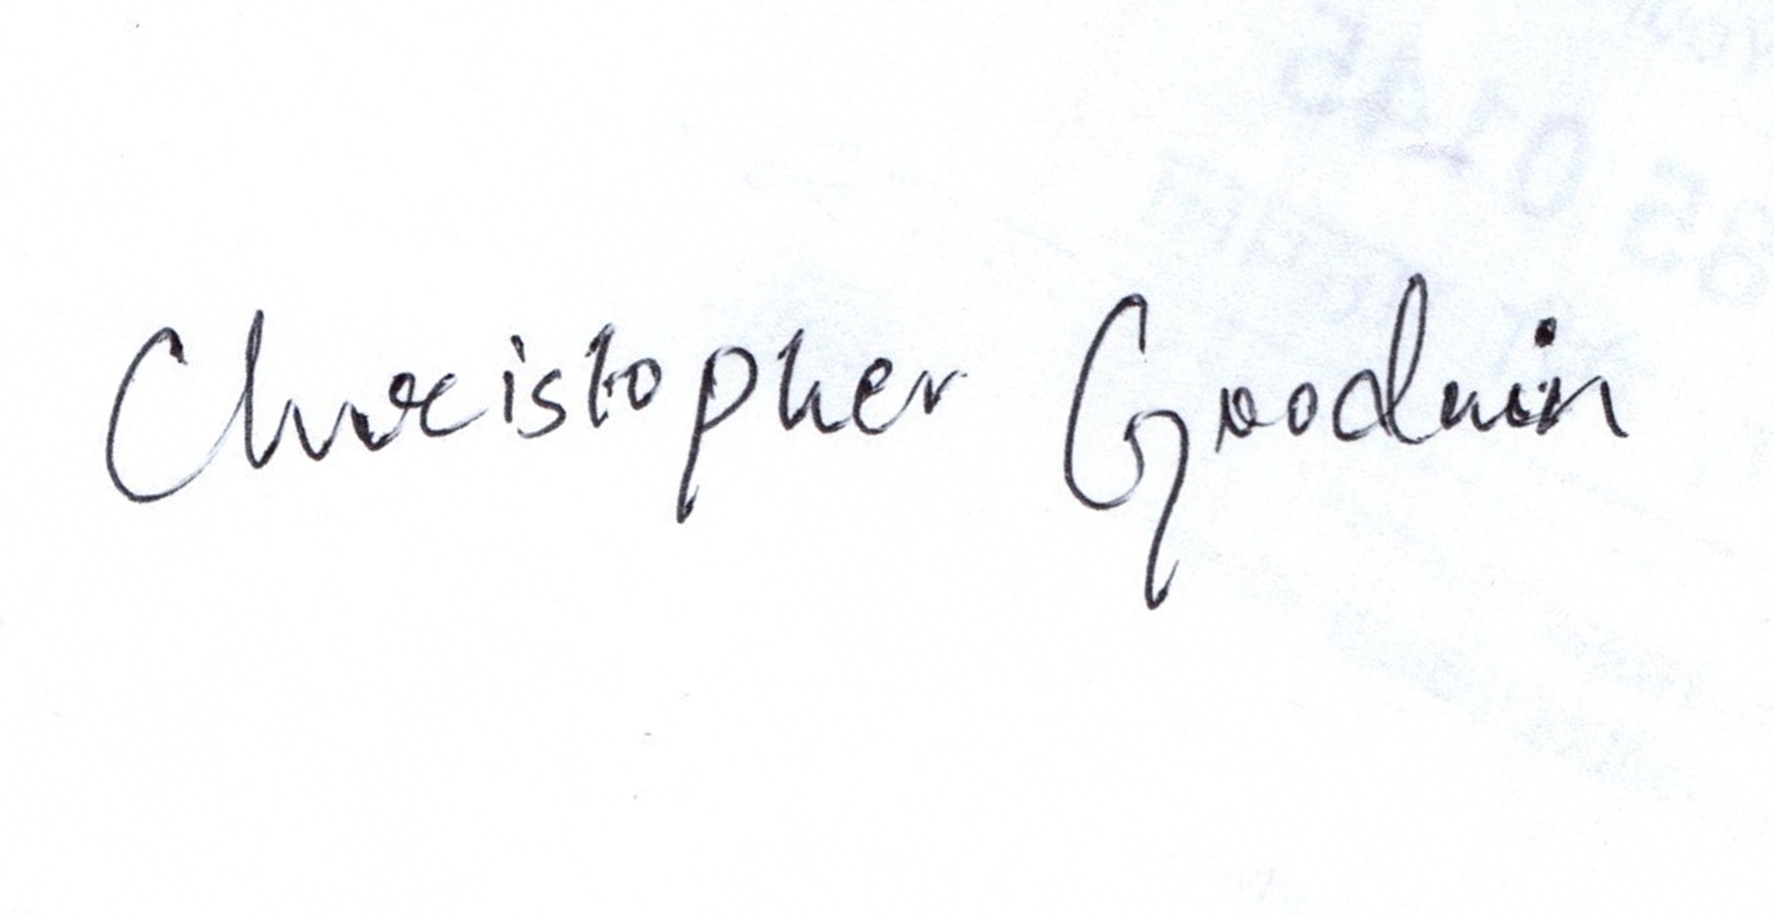 Christopher Goodwin